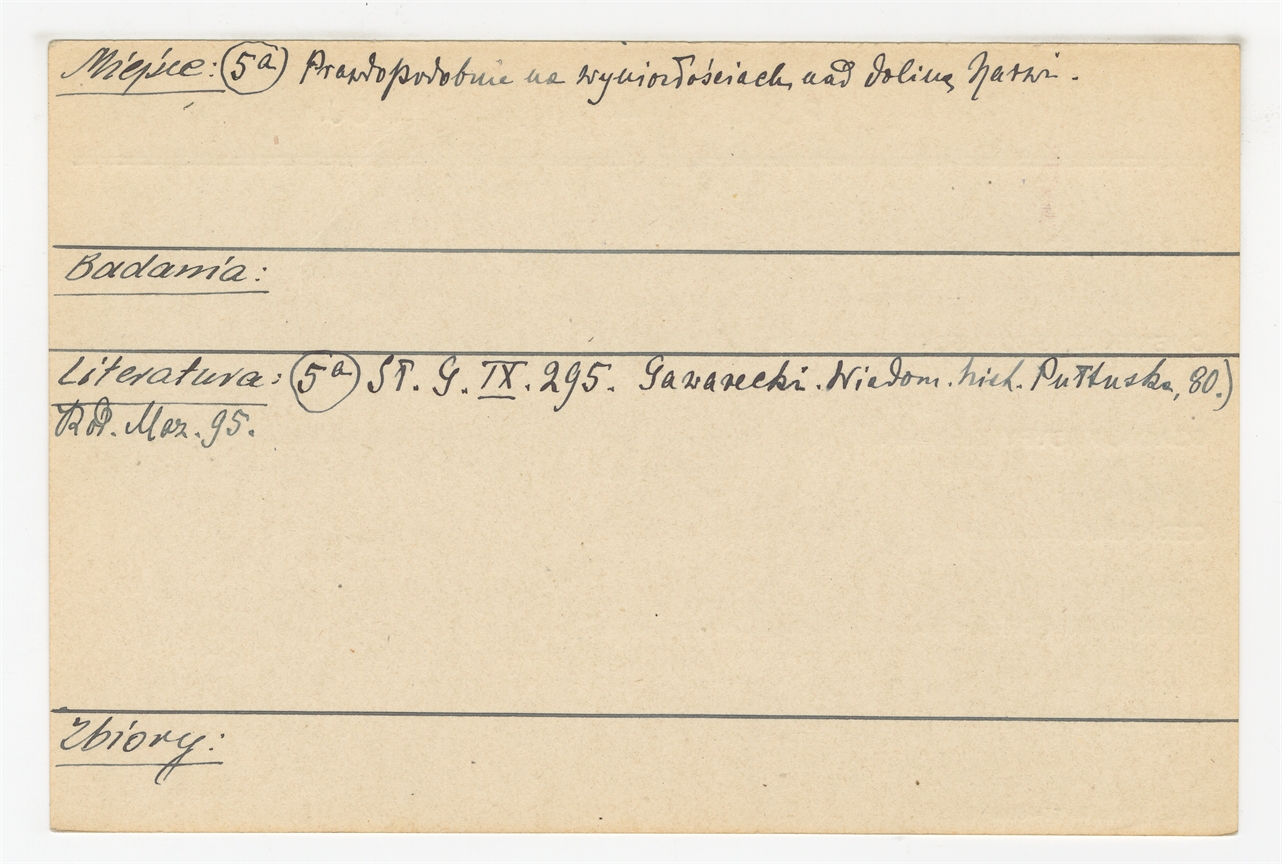 Miejsce: 5a) Prawdopodobnie na wyniosłościach nad doliną Narwi.
Badania:
Literatura: 5a) Sł. G. IX. 295. Gawarecki. Wiadom. hist. Pułtuska, 80.)
Maz. 95.
Zbiory: